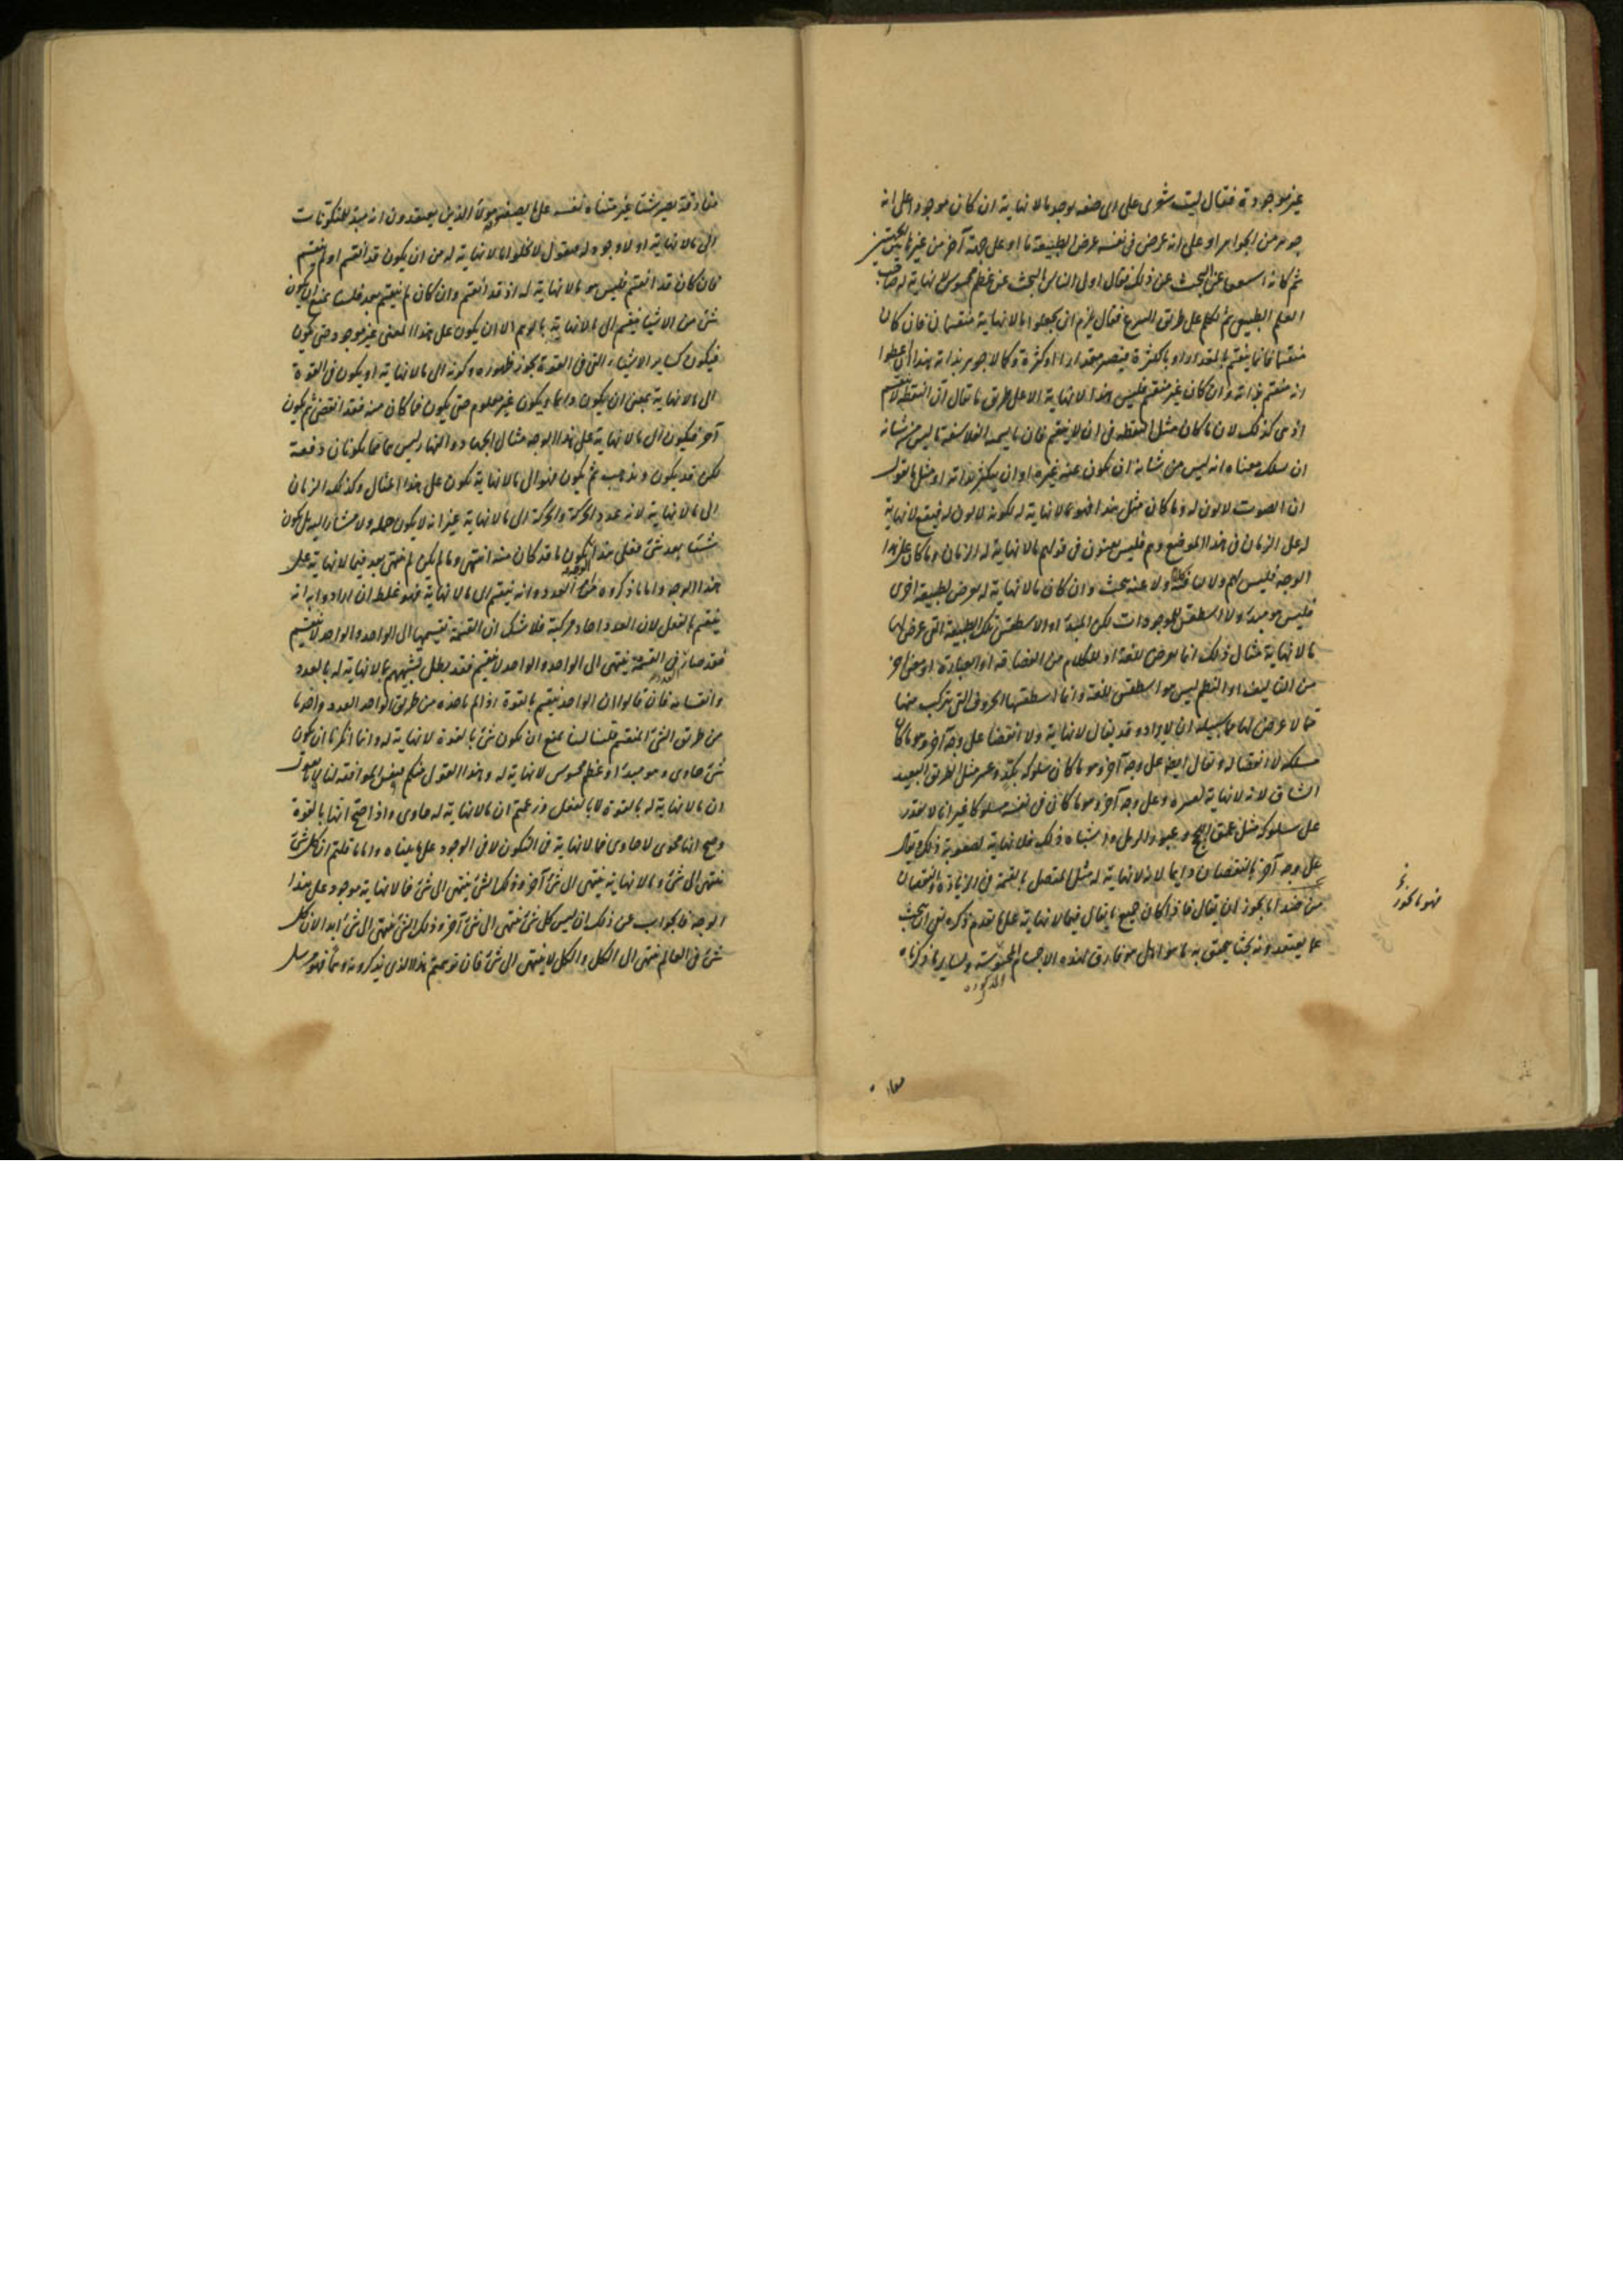 غير موجودة فقال ليت شعرى على اى صفة يوجد ما لا نهاية ان كان موجودا على انه
جوهر من الجواهر او على انه عرض فى نفسه عرض لطبيعة ما او على جهة آخر من غير
ثم كانه البحث عن ذلك فقال اولى الناس بالبحث عن عظم محسوس لا نهاية له صاحب
العلم الطبيعى ثم تكلم على طريق فقال يلزم ان يجعلوا ما لا نهاية منقسما فان كان
منقسما فانما ينقسم بالمقدار او بالكثرة فيصير مقدارا او كثرة وكالا جوهر بذاته هذا
انه منقسم بذاته وان كان غير منقسم فليس هذا لا نهاية الا على طريق ما يقال ان النقطة لا تنقسم
اذ هى كذلك لان ما كان مثل النقطة فى انه لا ينقسم فان ما يسميه الفلاسفة ما ليس من شانه
ان يسلك معناه انه ليس من شانه ان يكون عنه غيره او ان يتكثر ذاته او مثل ما يقول
ان الصوت لا لون له وما كان مثل هذا فهو ما لا نهاية له لكونه لا لون له فيقع لا نهاية
له على الزمان فى هذا الموضع وهم فليس يعنون فى قولهم ما لا نهاية له الزمان وما كان على هذا
الوجه فليس لهم ولا لنا ولا عنه بحث وان كان ما لا نهاية له يعرض لطبيعة اخرى
فليس هو مبدء ولا اسطقس للموجودات لكن المبدء او الاسطقس تلك الطبيعة التى عرض لها
ما لا نهاية مثال ذلك انما يعرض للغة او للكلام من الفصاحة او العبارة او معنى آخر
من التاليف او النظم ليس هو اسطقس للغة وانما اسطقسها الحروف التى تتركب منها
وقد يقال لا نهاية ولا انقضا على وجه آخر وهو ما كان
مسلكه لا انقضا له وتقال ايضا على وجه آخر وهو ما كان سلوكه بكد وعسر مثل الطريق البعيد
الشاق لانه لا نهاية لعسره وعلى وجه آخر وهو ما كان فى نفسه مسلوكا غير انا لا نقدر
على سلوكه مثل عمق البحر وعبور الرمل وما اشباه ذلك فلا نهاية لصعوبة ذلك ويقال
على وجه آخر بالنقصان دايما لانه لا نهاية له مثل المتصل بالقسمة فى الزيادة والنقصان
من هذا ما يجوز ان يقال فاذا كان جميع ما يقال فيما لا نهاية على ما تقدم ذكره ينبغى ان نبحث
عما يعتقدونه بحثا يحقق به ما هو اهل هو مفارق لهذه الاجسام المحسوسة ولساير ما ذكرناه
المذكورة
فهو ما يجوز
مفارقة يصير شيئا غير متناه لنفسه على ما يصفه هؤلاء الذين يعتقدون انه مبدء للمتكونات
الى ما لا نهاية اولا وجود له معقول لا يخلوا ما لا نهاية له من ان يكون قد انقسم او لم ينقسم
فان كان قد انقسم فليس هو ما لا نهاية له اذ قد انقسم وان كان لم ينقسم بعد فلسنا نمنع ان يكون
شئ من الاشيا ينقسم الى ما لا نهاية بالوهم الا ان يكون على هذا المعنى غير موجود حتى يكون
فيكون كساير الاشياء التى فى القوة يجوز ظهوره وكونه الى ما لا نهاية او يكون فى القوة
الى ما لا نهاية بمعنى ان يكون دايما ويكون غير معلوم حتى يكون فما كان منه فقد انقضى ثم يكون
آخر فيكون الى ما لا نهاية على هذا الوجه مثال الجهاد والنهار ليس هما مما يكونان دفعة
لكن قد يكون ويذهب ثم يكون فهو الى ما لا نهاية يكون على هذا المثال وكذلك الزمان
الى ما لا نهاية لانه عدد الحركة والحركة الى ما لا نهاية غير انه لا يكون جملة ولا مشار اليه بل يكون
شيئا بعد شئ فعلى هذا يكون ما قد كان منه انتهى وما لم يكن لم ينتهى بعد فيما لا نهاية على
هذا الوجه واما ما ذكروه من العدد وانه ينقسم الى ما لا نهاية فهو غلط ان ارادوا به انه
ينقسم بالفعل لان العدد احاد مركبة فلا شك ان القسمة تقسمها الى الواحد والواحد لا ينقسم
فقد صار فى القسمة ينتهى الى الواحد والواحد لا ينقسم فقد بطل تشبيههم ما لا نهاية له بالعدد
وانقسامه فان قالوا ان الواحد ينقسم بالقوة اذا لم ياخذه من طريق الواحد العدد واخذنا
من طريق الشئ المنقسم قلنا لسنا نمنع ان يكون شئ بالقوة لا نهاية له وانما انكرنا ان يكون
شئ حاوى وهو مبدء او عظم محسوس لا نهاية له وهذا القول منكم يقتضى الموافقة لنا
ان ما لا نهاية له بالقوة لا بالفعل وزعمتم ان ما لا نهاية له حاوى واذا صح انها بالقوة
وصح انها محوى لا حاوى فما لا نهاية فى التكون لا فى الوجود على ما بيناه واما ما قلتم ان كل شئ
ينتهى الى شئ وما لا نهاية ينتهى الى شئ آخر وذلك الشئ ينتهى الى شئ فما لا نهاية موجود على هذا
الوجه فالجواب عن ذلك ان ليس كل شئ ينتهى الى شئ آخر وذلك الشئ ينتهى الى شئ ابدا لان كل
شئ فى العالم ينتهى الى الكل والكل لا ينتهى الى شئ فان توهمتم هذا الذى تذكرونه